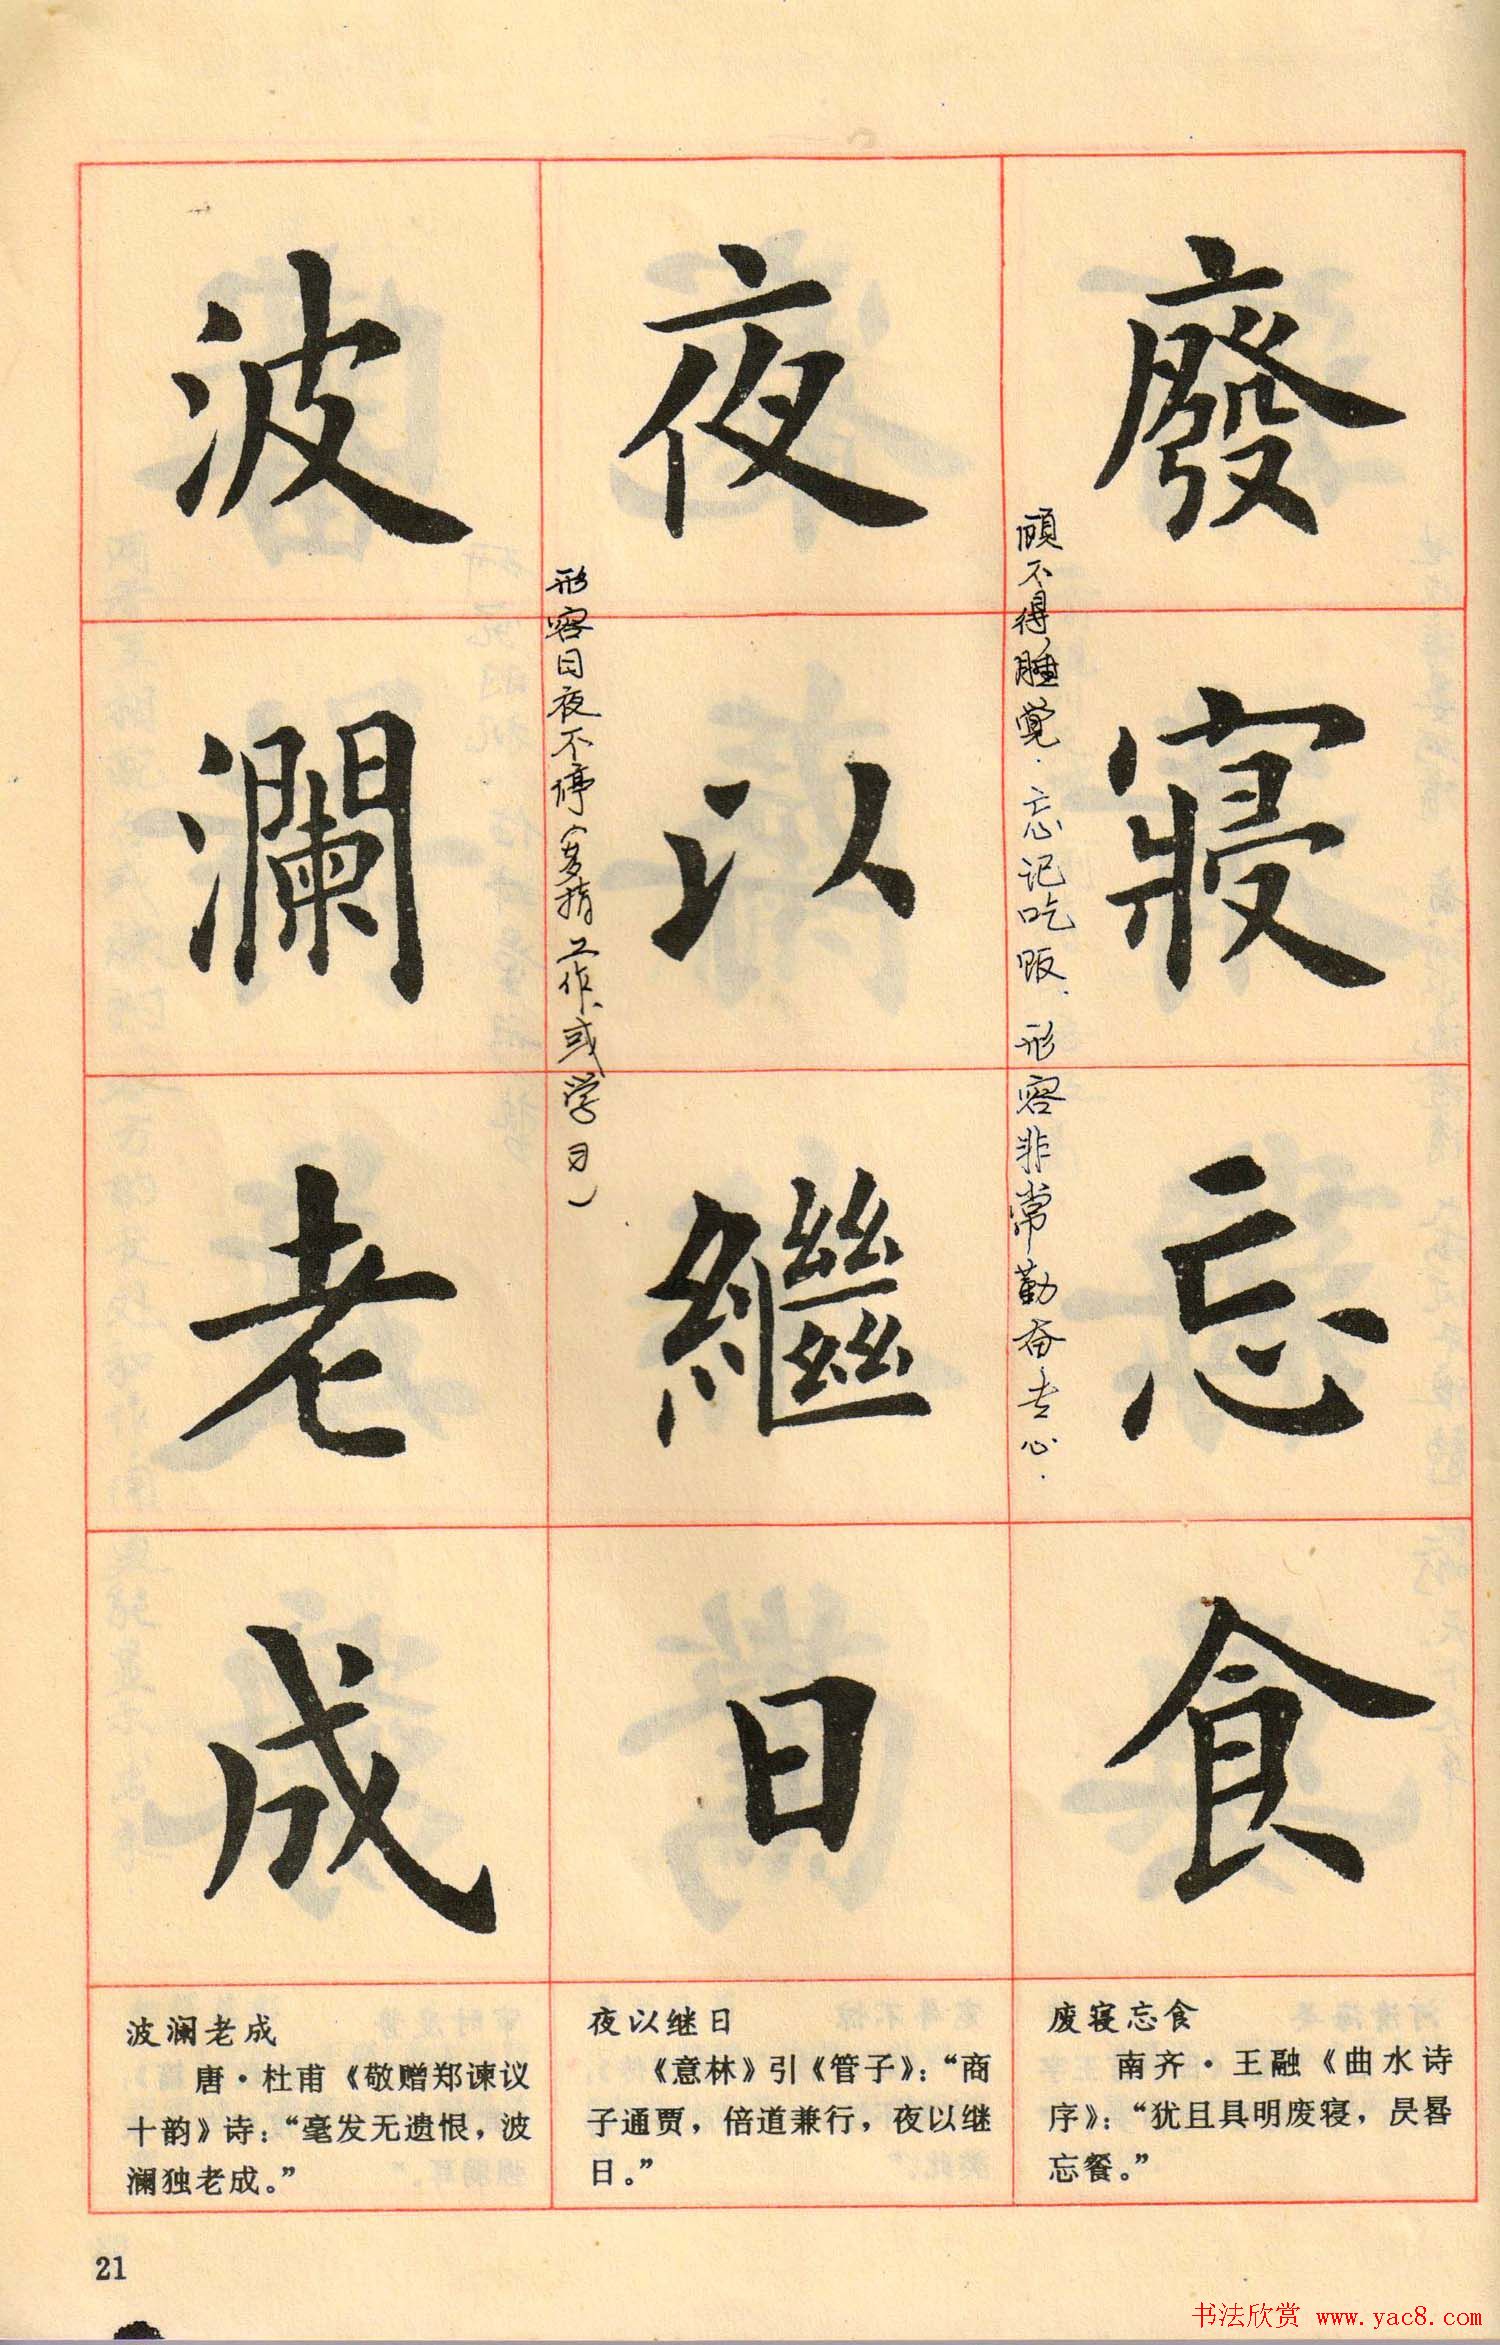 廢寢忘食
顾不得睡觉.忘记吃饭.形容非常勤奋专心.
夜以繼日
形容日夜不停(多指工作或学习)
波瀾老成
废寝忘食
南齐·王融《曲水诗
序》：“犹且具明废寝，昃晷
忘餐。”
夜以继日
《意林》引《管子》：“商
子通贾，倍道兼行，夜以继
日。”
波澜老成
唐·杜甫《敬赠郑谏议
十韵》诗：“毫发无遗恨，波
澜独老成。”
21
书法欣赏 www.yac8.com